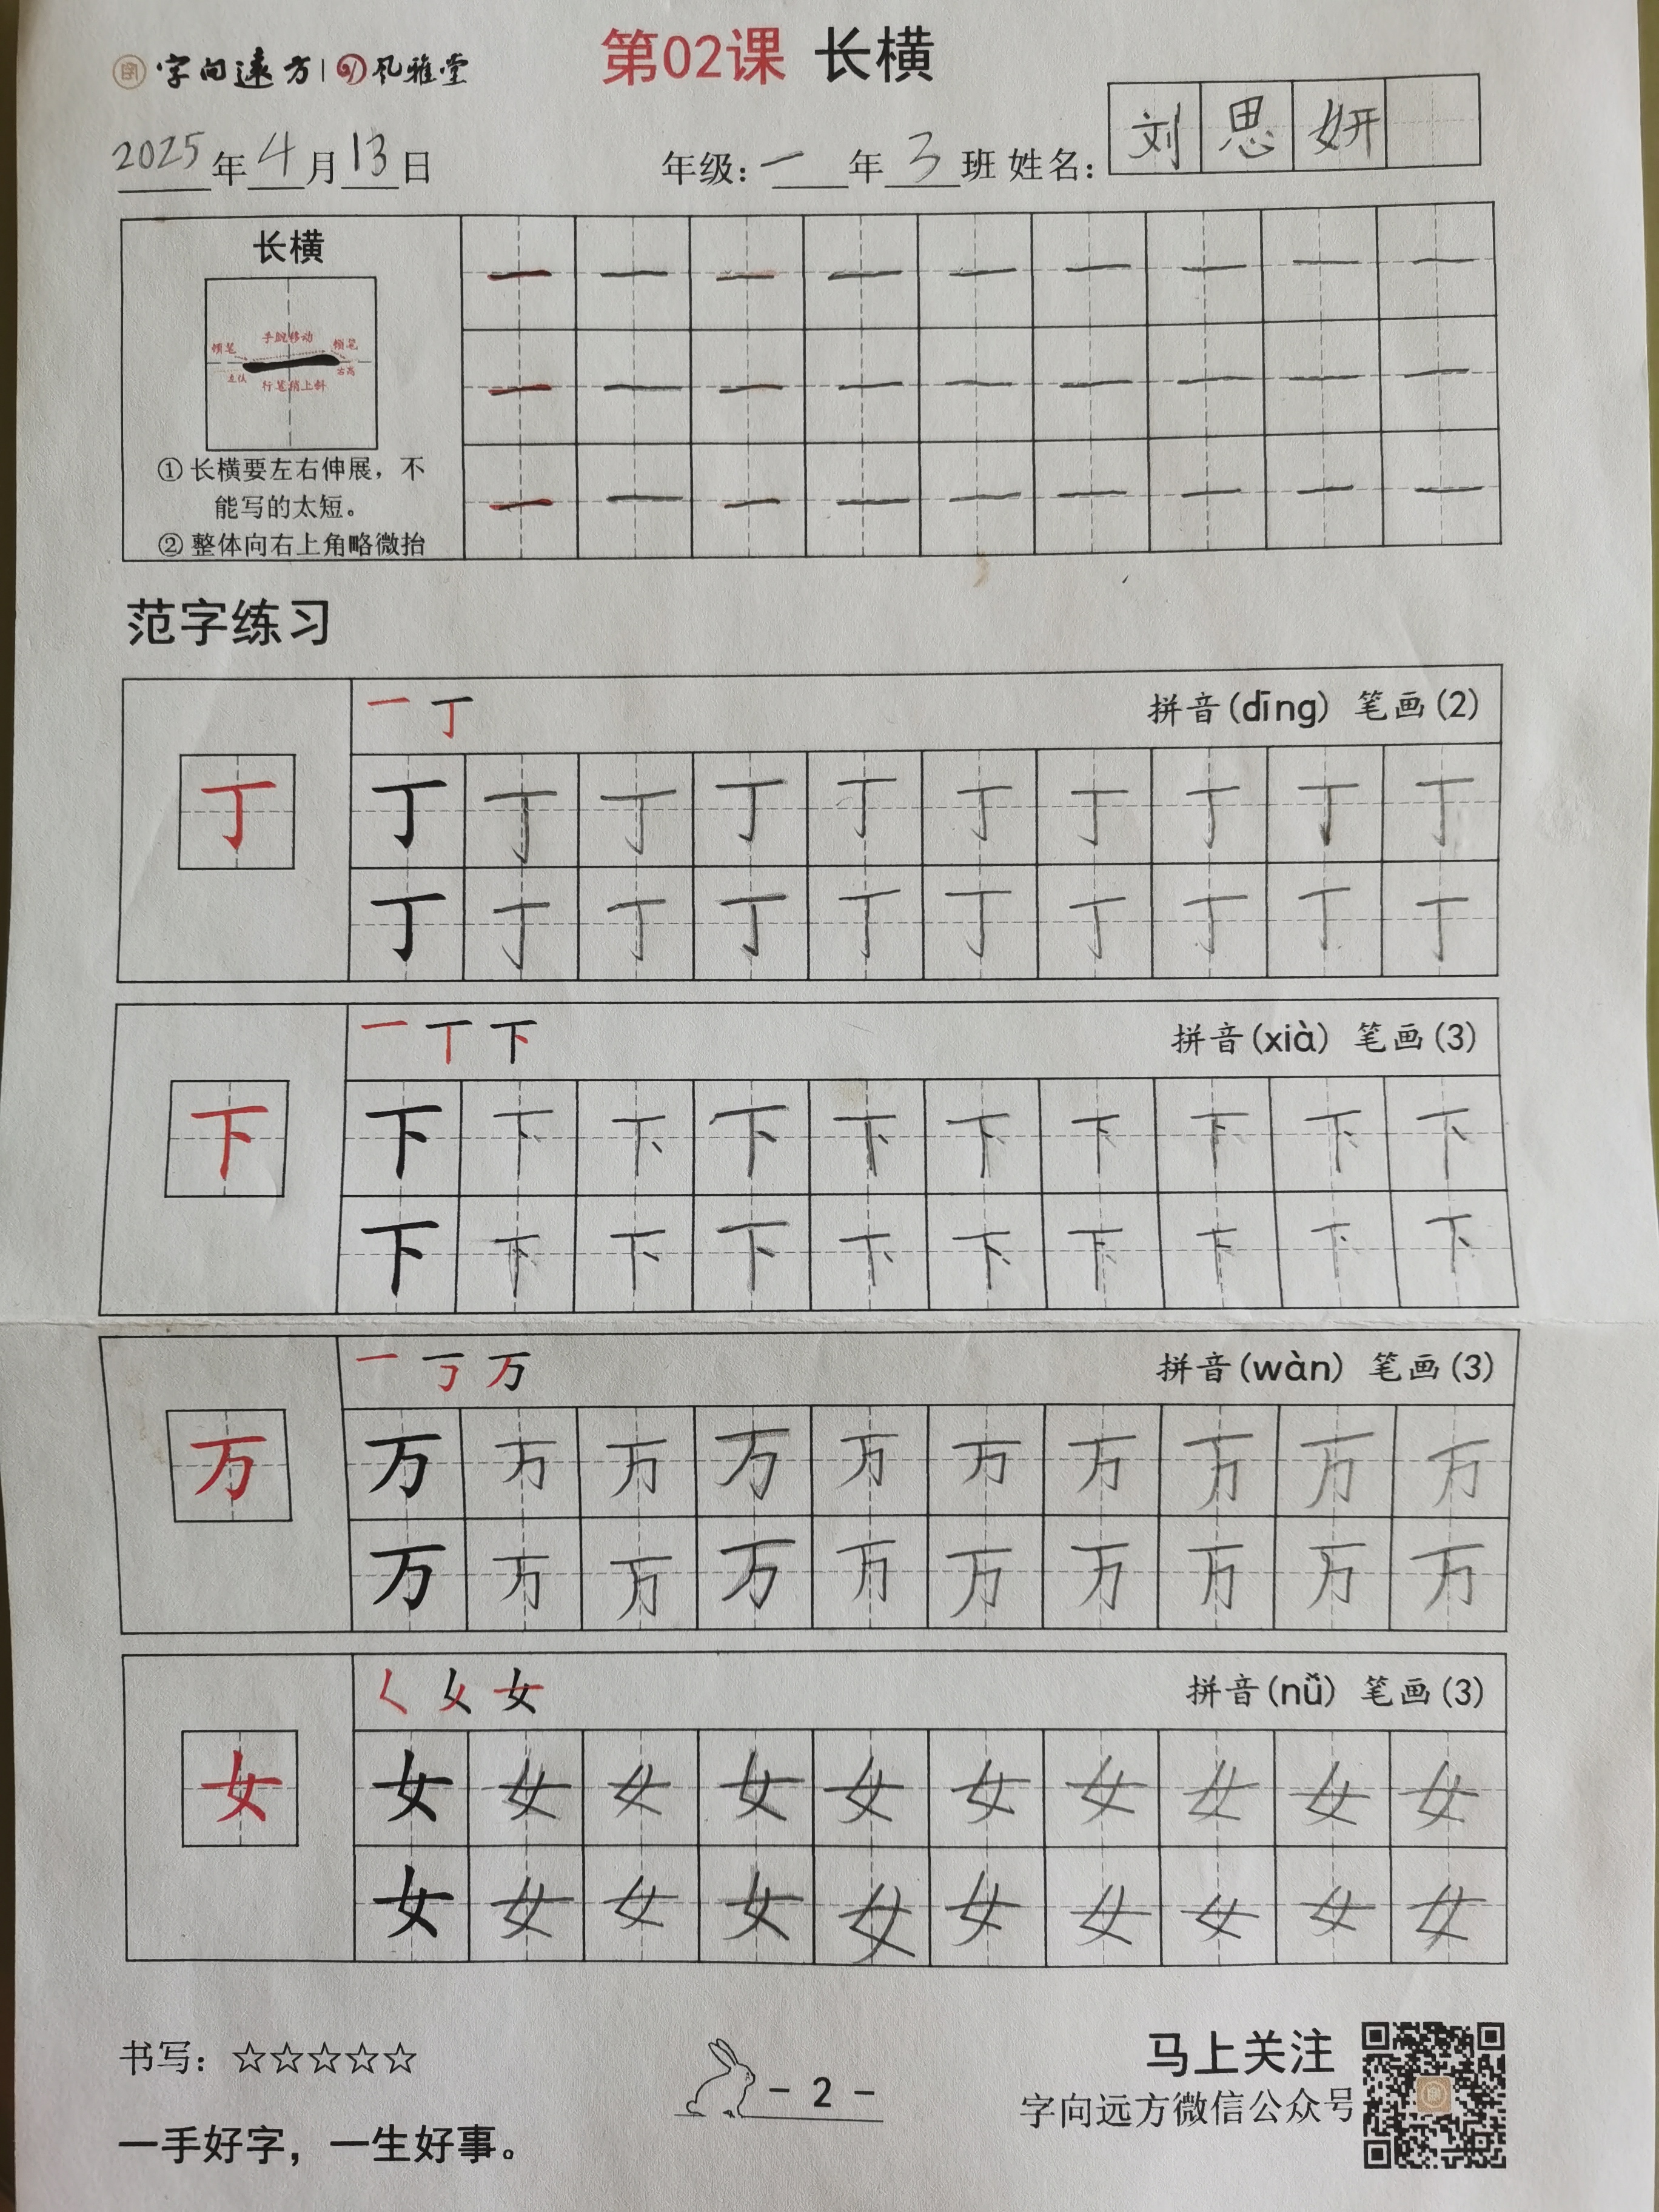 字 字向遠方 | 风雅堂
第02课 长横
2025年4月13日 年级：一年3班 姓名：刘思妍
长横
手腕移动
顿笔 顿笔
左低 右高
行笔稍上斜
① 长横要左右伸展，不
能写的太短。
② 整体向右上角略微抬
一 一 一 一 一 一 一 一 一
一 一 一 一 一 一 一 一 一
一 一 一 一 一 一 一 一 一
范字练习
一 丁 拼音(dīng) 笔画(2)
丁
丁 丁 丁 丁 丁 丁 丁 丁 丁 丁
丁 丁 丁 丁 丁 丁 丁 丁 丁 丁
一 丅 下 拼音(xià) 笔画(3)
下
下 下 下 下 下 下 下 下 下 下
下 下 下 下 下 下 下 下 下 下
一 丂 万 拼音(wàn) 笔画(3)
万
万 万 万 万 万 万 万 万 万 万
万 万 万 万 万 万 万 万 万 万
女 拼音(nǚ) 笔画(3)
女
女 女 女 女 女 女 女 女 女 女
女 女 女 女 女 女 女 女 女 女
书写：☆☆☆☆☆
一手好字，一生好事。
- 2 -
马上关注
字向远方微信公众号